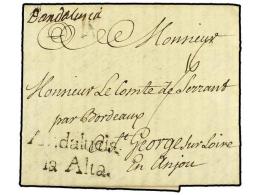 Dandalucia
Monsieur
16
Monsieur Le Comte de Serrant
par Bordeaux
Andalucia
St. George sur Loire
la Alta.
En Anjou